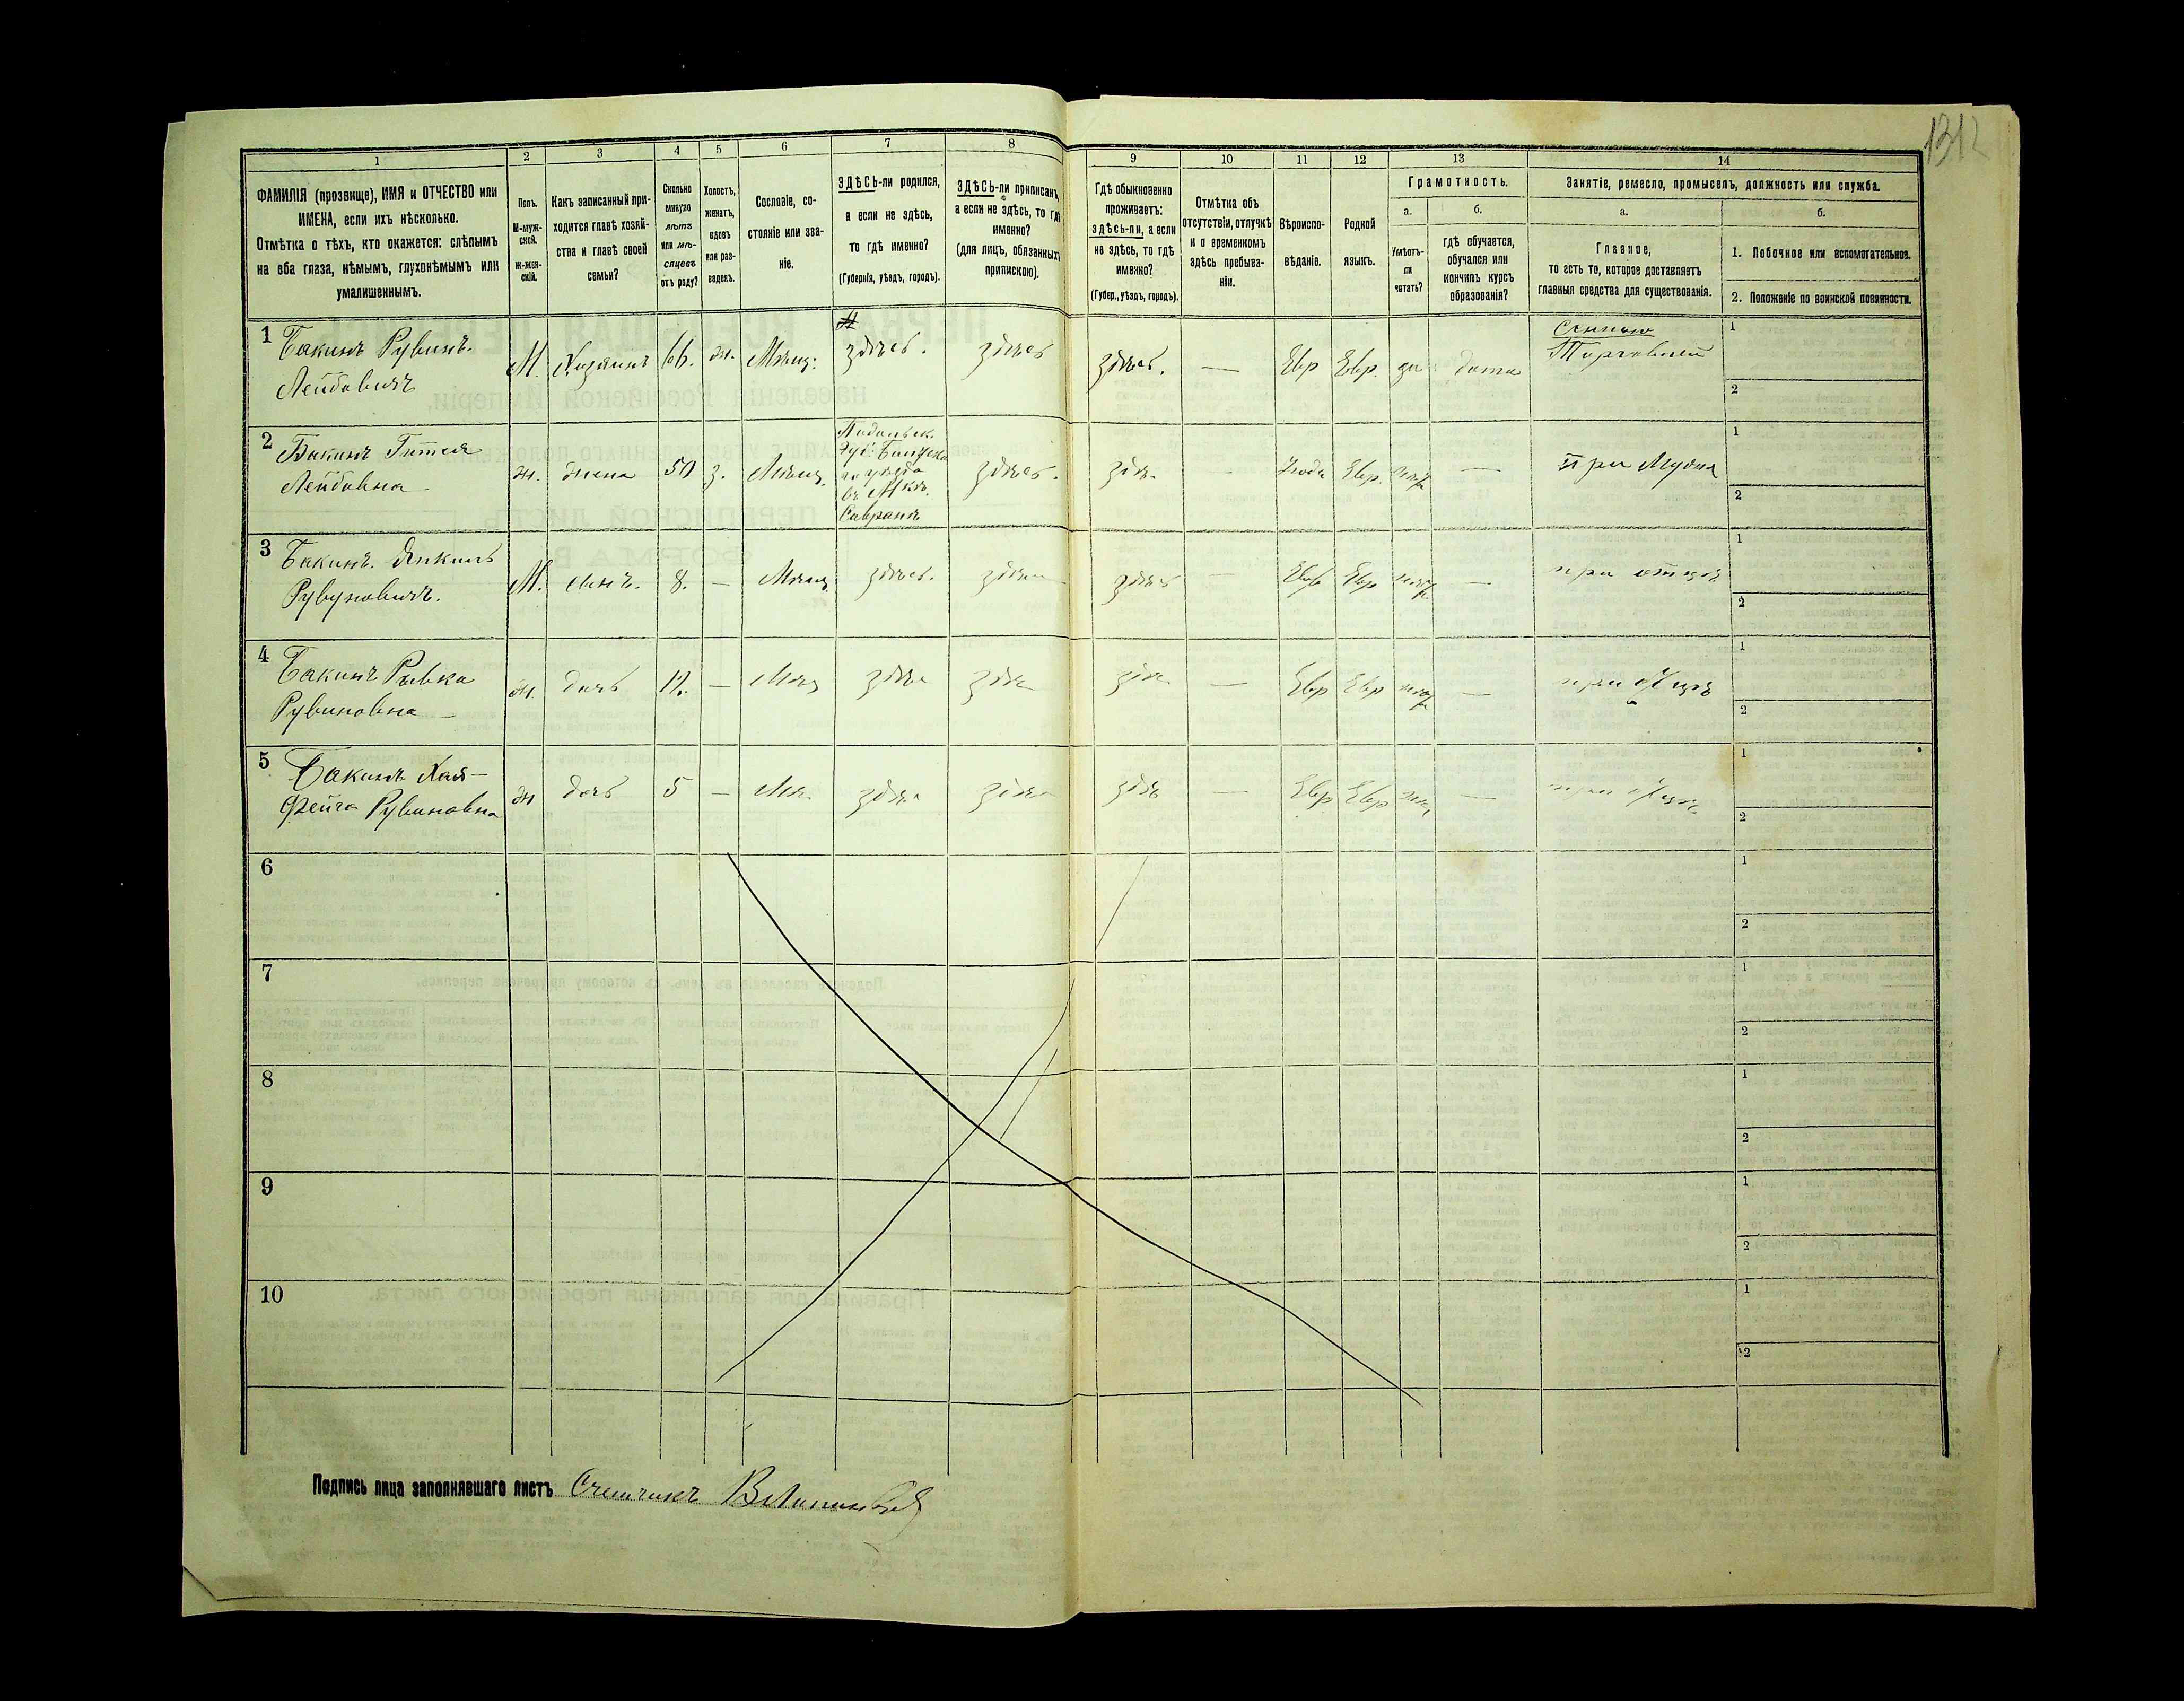 1312
1 2 3 4 5 6 7 8 9 10 11 12 13 14
ФАМИЛІЯ (прозвище), ИМЯ и ОТЧЕСТВО или
ИМЕНА, если ихъ нѣсколько.
Отмѣтка о тѣхъ, кто окажется: слѣпымъ
на оба глаза, нѣмымъ, глухонѣмымъ или
умалишеннымъ.
Полъ.
М-муж-
ской.
Ж-жен-
скій.
Какъ записанный при-
ходится главѣ хозяй-
ства и главѣ своей
семьи?
Сколько
минуло
лѣтъ
или мѣ-
сяцевъ
отъ роду?
Холостъ,
женатъ,
вдовъ
или раз-
веденъ.
Сословіе, со-
стояніе или зва-
ніе.
ЗДѢСЬ-ли родился,
а если не здѣсь,
то гдѣ именно?
(Губернія, уѣздъ, городъ).
ЗДѢСЬ-ли приписанъ,
а если не здѣсь, то гдѣ
именно?
(для лицъ, обязанныхъ
припискою).
Гдѣ обыкновенно
проживаетъ:
здѣсь-ли, а если
не здѣсь, то гдѣ
именно?
(Губер., уѣздъ, городъ).
Отмѣтка объ
отсутствіи, отлучкѣ
и о временномъ
здѣсь пребыва-
ніи.
Вѣроиспо-
вѣданіе.
Родной
языкъ.
Грамотность.
а.
Умѣетъ-
ли
читать?
б.
гдѣ обучается,
обучался или
кончилъ курсъ
образованія?
Занятіе, ремесло, промыселъ, должность или служба.
а.
Главное,
то есть то, которое доставляетъ
главныя средства для существованія.
б.
1. Побочное или вспомогательное.
2. Положеніе по воинской повинности.
1 Бакинъ Рувинъ
Лейбовичъ
М. Хозяинъ 66. ж. Мѣщ: здѣсь. здѣсь здѣсь. — Евр Евр. да дома
Торговлей
1
2
2 Бакинъ Гитля
Лейбовна
ж. жена 50 з. Мѣщ.
Подольск.
Губ: Балтска
го уѣзда
въ Мкѣ.
Саврань
здѣсь. здѣ. — Евр. — при Мужѣ
1
2
3 Бакинъ
Рувуновичъ.
М. сынъ. 8. — Мѣщ. здѣсь. здѣсь — Евр Евр — при отцѣ
1
2
4 Бакинъ Рывка
Рувиновна
ж. дочь — Мѣщ — Евр Евр — при Отцѣ
1
2
5 Бакинъ Хая-
Фейга Рувиновна
ж дочь 5 — Мѣ. — Евр Евр — при Отцѣ
1
2
6
1
2
7
1
2
8
1
2
9
1
2
10
1
2
Подпись лица заполнявшаго листъ Счетчикъ